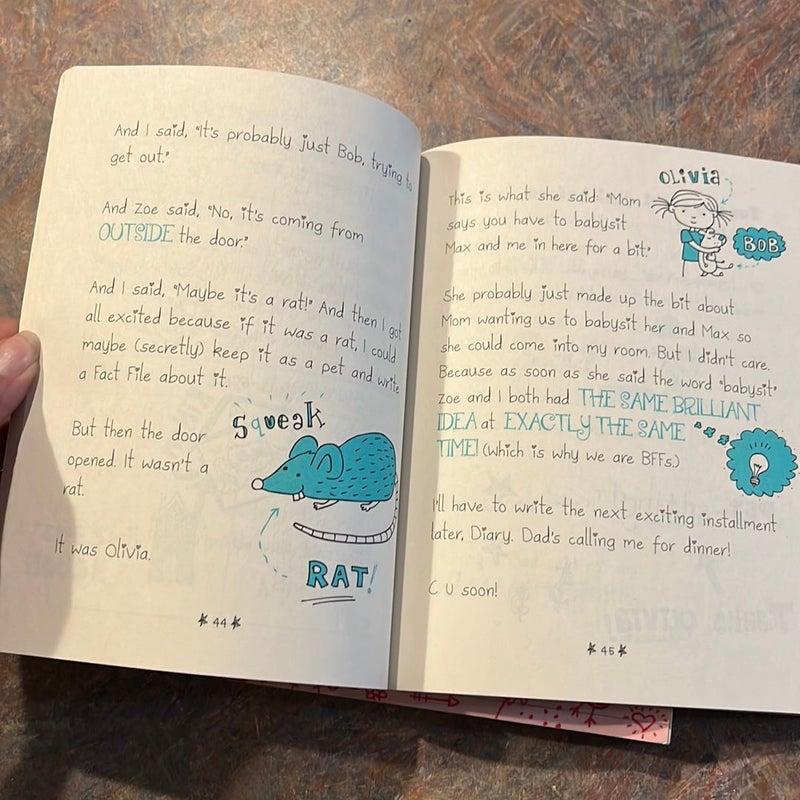 And I said, "It's probably just Bob, trying to
get out."
And Zoe said, "No, it's coming from
OUTSIDE the door."
And I said, "Maybe it's a rat!" And then I got
all excited because if it was a rat, I could
maybe (secretly) keep it as a pet and write
a Fact File about it.
But then the door
opened. It wasn't a
rat.
Squeak
It was Olivia.
RAT!
44
OLIVIA
This is what she said: "Mom
says you have to babysit
Max and me in here for a bit."
BOB
She probably just made up the bit about
Mom wanting us to babysit her and Max so
she could come into my room. But I didn't care.
Because as soon as she said the word "babysit"
Zoe and I both had THE SAME BRILLIANT
IDEA at EXACTLY THE SAME
TIME! (Which is why we are BFFs.)
I'll have to write the next exciting installment
later, Diary. Dad's calling me for dinner!
C U soon!
45